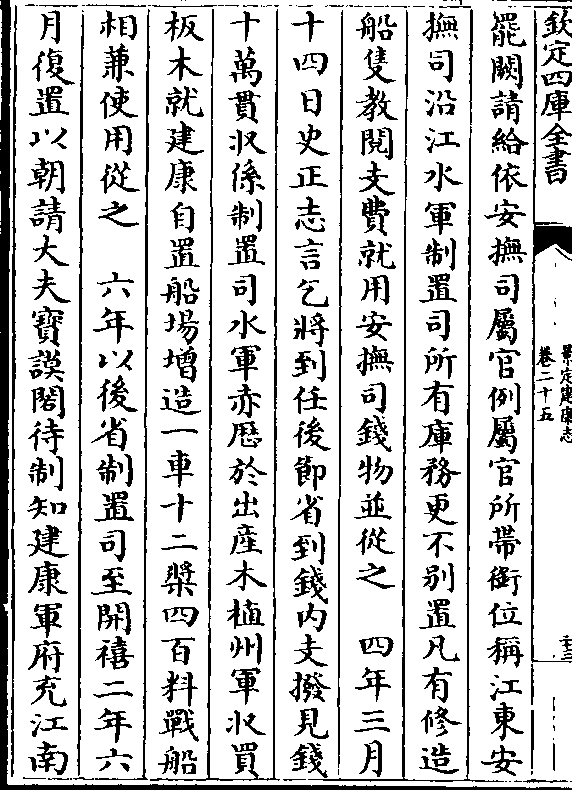 欽定四庫全書
景定建康志
卷二十五
二十三
罷闕請給依安撫司屬官例屬官所帶銜位稱江東安
撫司沿江水軍制置司所有庫務更不别置凡有修造
船隻教閱支費就用安撫司錢物並從之 四年三月
十四日史正志言乞將到任後節省到錢内支撥見錢
十萬貫收係制置司水軍赤厯於出産木植州軍收買
板木就建康自置船場增造一車十二槳四百料戰船
相兼使用從之 六年以後省制置司至開禧二年六
月復置以朝請大夫寶謨閣待制知建康軍府充江南